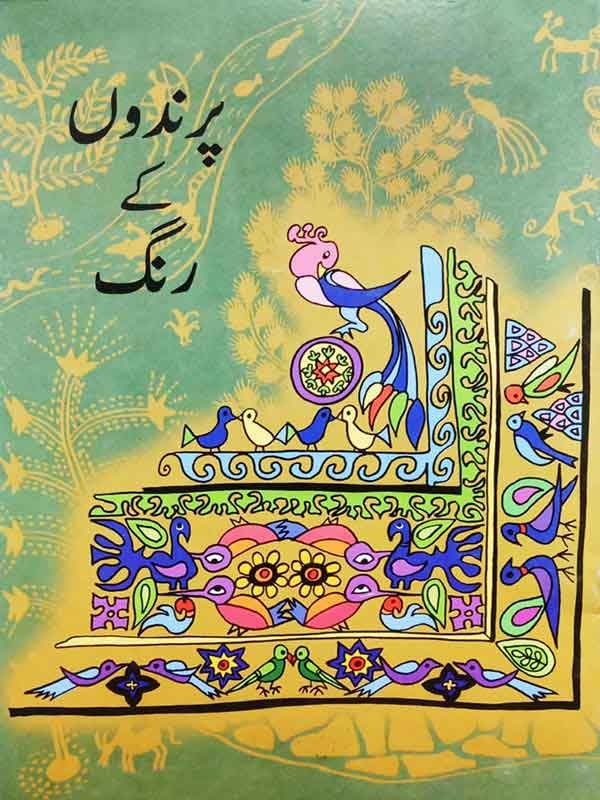 پرندوں
کے
رنگ